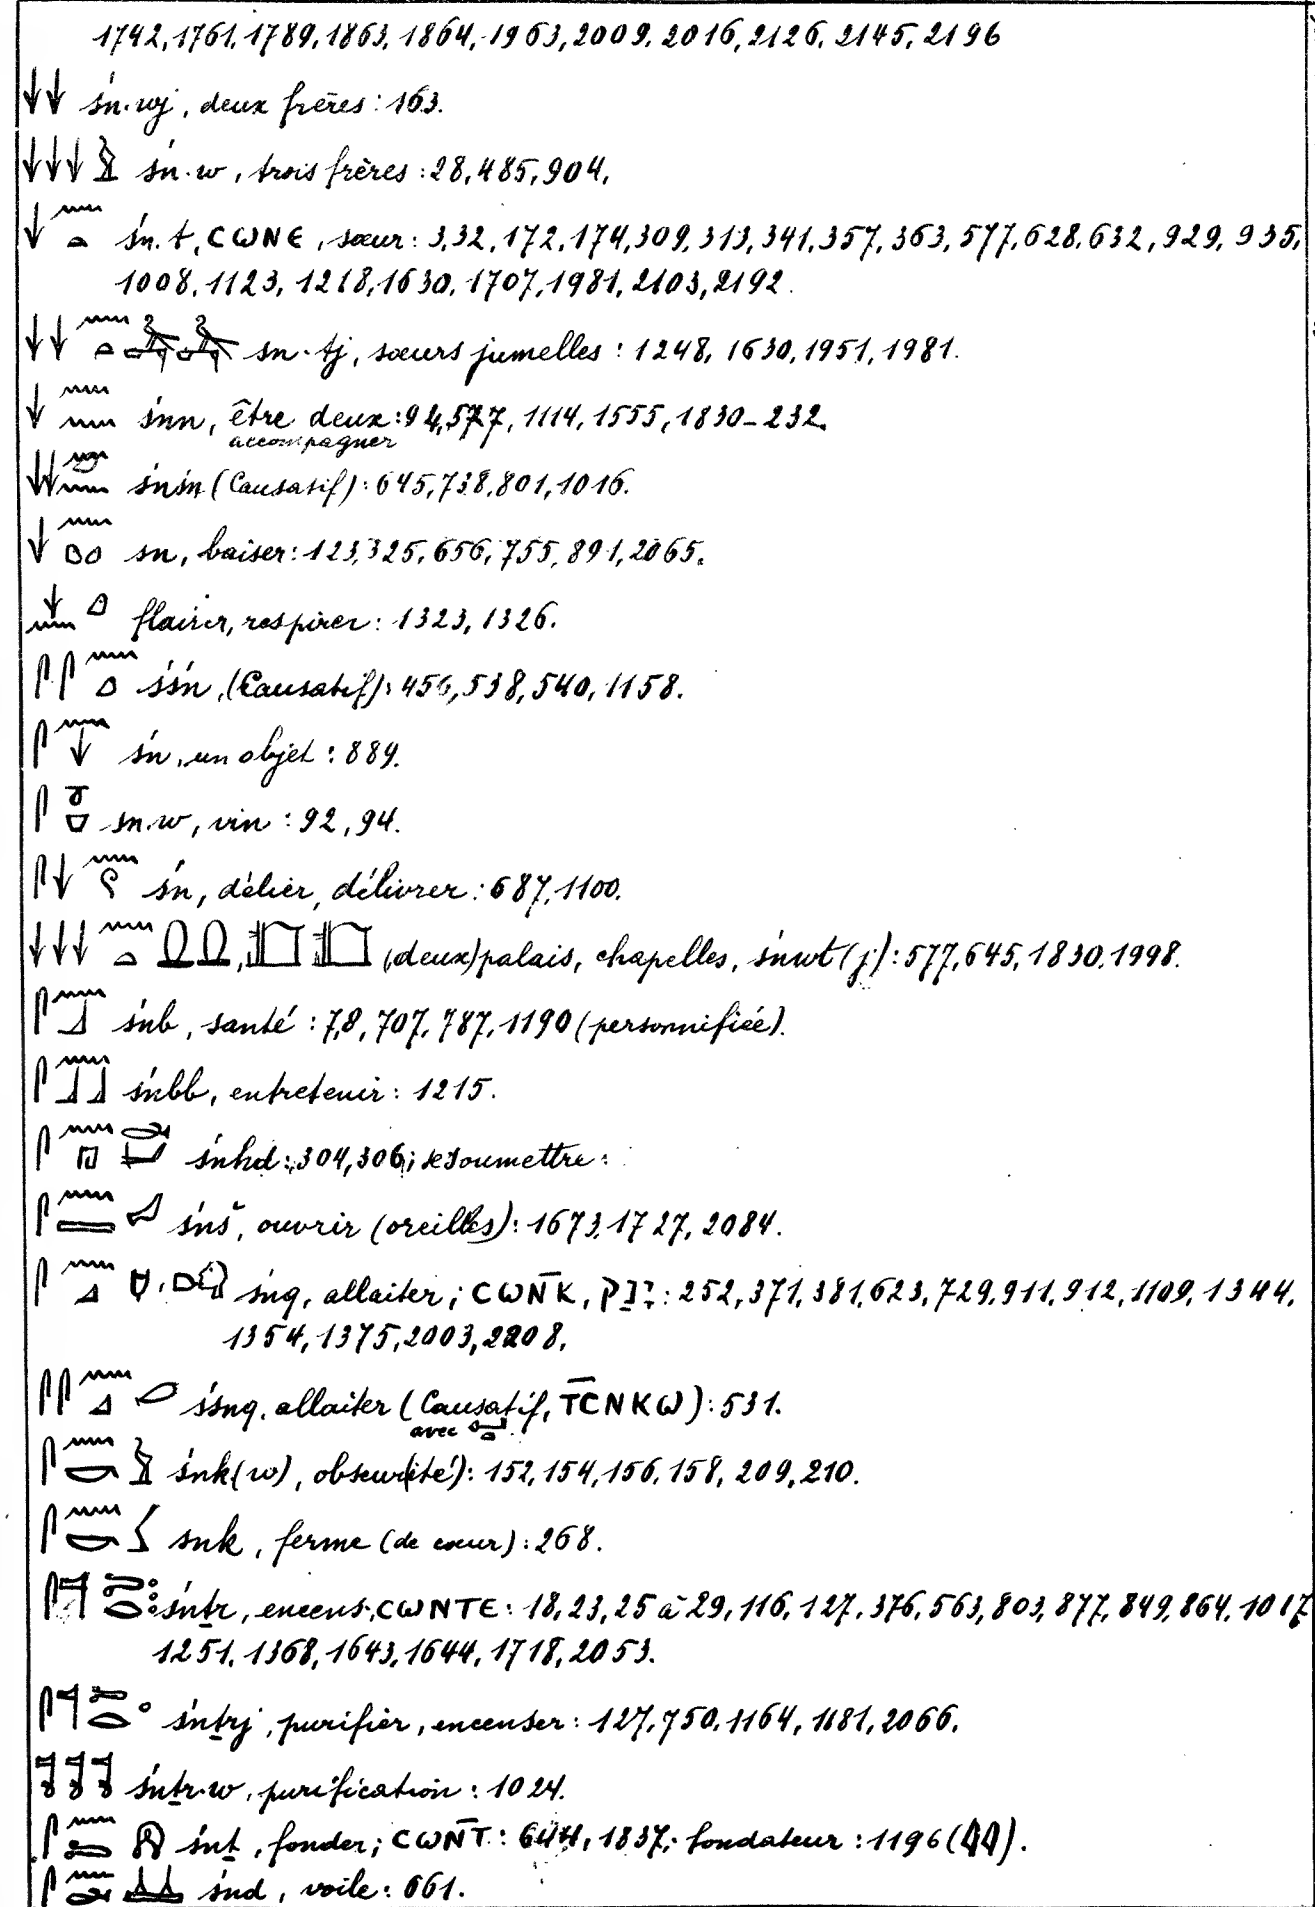 1742, 1761, 1789, 1863, 1864, 1963, 2009, 2016, 2126, 2145, 2196
𓌢𓌢 śn·wj, deux frères : 163.
𓌢𓌢𓌢 śn·w, trois frères : 28, 485, 904,
𓌢𓈖𓏏 śn.t, ⲤⲰⲚⲈ, sœur : 3, 32, 172, 174, 309, 313, 341, 357, 363, 577, 628, 632, 929, 935,
1008, 1123, 1218, 1630, 1707, 1981, 2103, 2192.
𓌢𓌢𓈖𓏏 sn·tj, sœurs jumelles : 1248, 1630, 1951, 1981.
𓌢𓈖𓈖 śnn, être deux : 94, 577, 1114, 1555, 1830-232.
accompagner
𓌢𓌢𓈖𓈖 śnśn (Causatif) : 645, 738, 801, 1016.
𓌢𓈖 sn, baiser : 123, 325, 656, 755, 891, 2065.
𓌢𓈖 flairer, respirer : 1323, 1326.
𓋴𓋴𓈖 śśn, (Causatif) : 456, 538, 540, 1158.
𓋴𓈖𓌢 śn, un objet : 889.
𓋴𓏌 sn.w, vin : 92, 94.
𓋴𓌢𓈖 śn, délier, délivrer : 687, 1100.
𓌢𓌢𓌢𓈖𓏏 (deux) palais, chapelles, śnwt(j) : 577, 645, 1830, 1998.
𓋴𓈖𓃀 śnb, santé : 7, 8, 707, 787, 1190 (personnifiée).
𓋴𓈖𓃀𓃀 śnbb, entretenir : 1215.
𓋴𓈖𓉔𓂧 śnhd : 304, 306; se soumettre :
𓋴𓈖𓈙 śnš, ouvrir (oreilles) : 1673, 1727, 2084.
𓋴𓈖𓈎 śnq, allaiter ; ⲤⲰⲚ̅Ⲕ, ינק : 252, 371, 381, 623, 729, 911, 912, 1109, 1344,
1354, 1375, 2003, 2208,
𓋴𓋴𓈖𓈎 śśnq, allaiter (Causatif, ⲦⲤⲚⲔⲰ) : 531.
avec
𓋴𓈖𓎡 śnk(w), obscur(ité) : 152, 154, 156, 158, 209, 210.
𓋴𓈖𓎡 snk, ferme (de cœur) : 268.
𓋴𓊹𓍿𓂋 śnṯr, encens, ⲤⲰⲚⲦⲈ : 18, 23, 25 à 29, 116, 127, 376, 563, 803, 877, 849, 864, 1017
1251, 1368, 1643, 1644, 1718, 2053.
𓋴𓊹𓍿𓂋 śnṯrj, purifier, encenser : 127, 750, 1164, 1181, 2066.
𓊹𓊹𓊹 śnṯr·w, purification : 1024.
𓋴𓈖𓍿 śnṯ, fonder ; ⲤⲰⲚ̅Ⲧ : 644, 1837; fondateur : 1196 (𓇋𓇋).
𓋴𓈖𓂧 śnd, voile : 661.